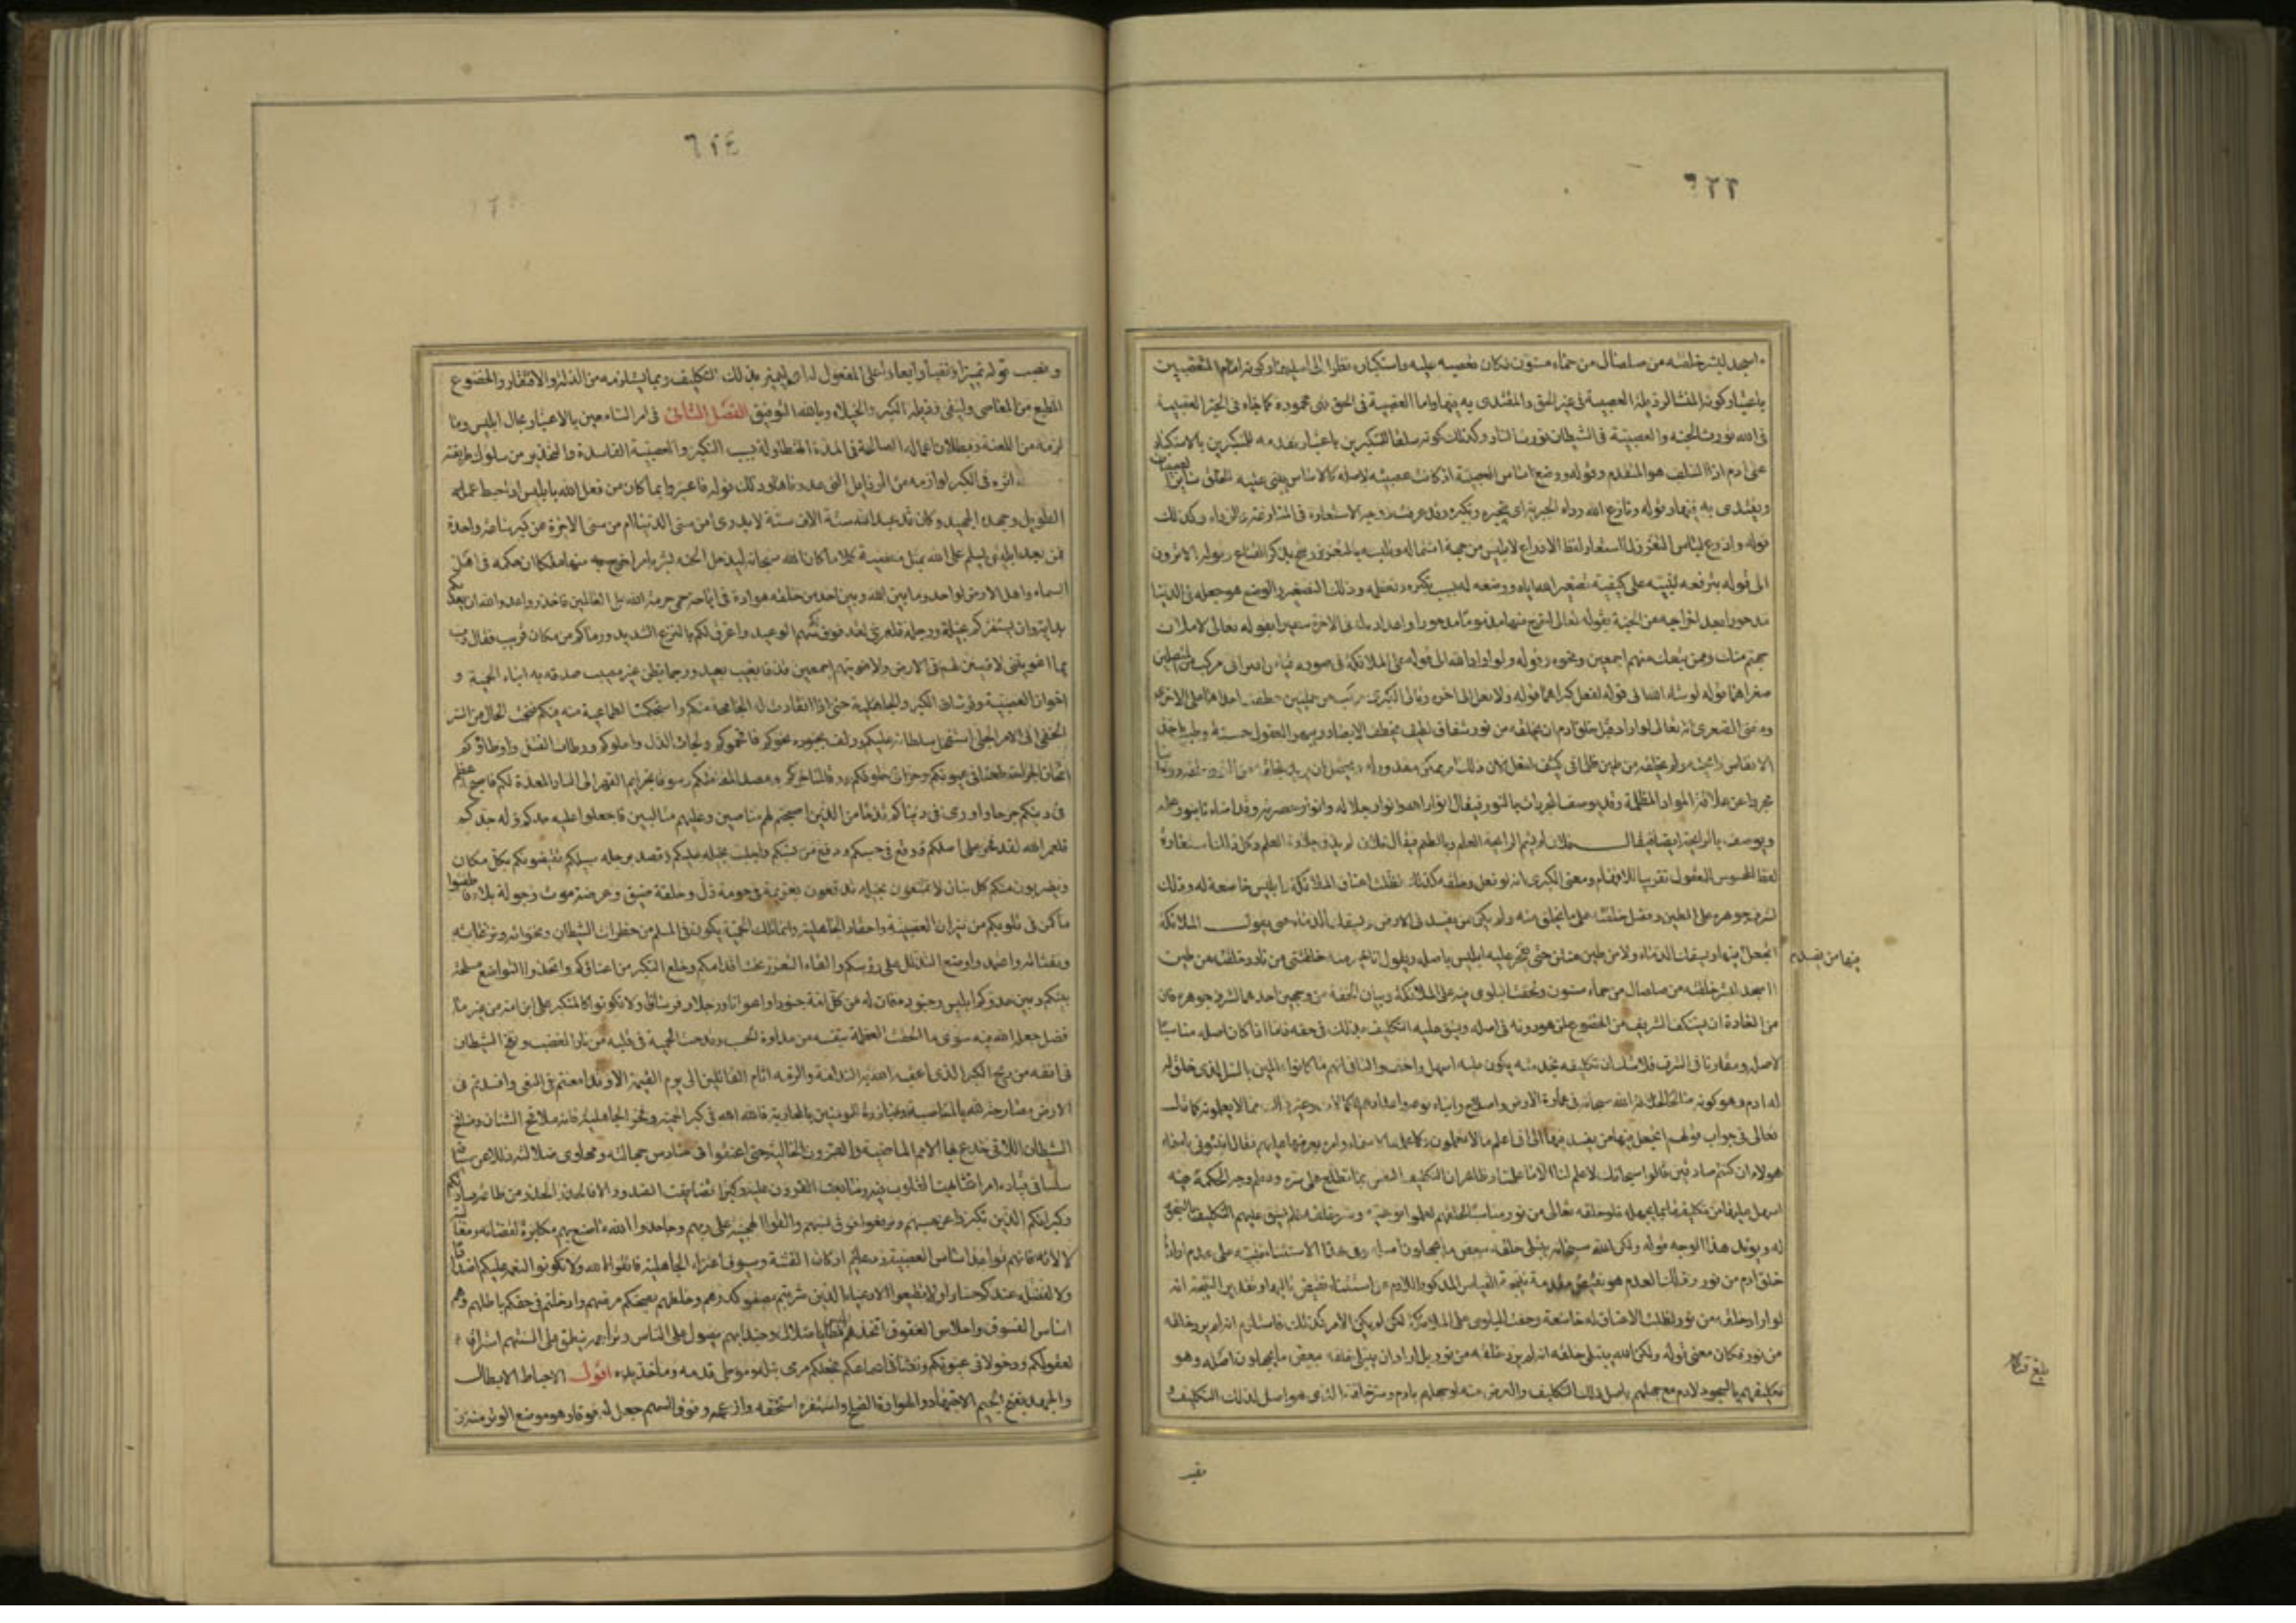 ءاسجد لبشر خلقته من صلصال من حماء مسنون فكان تعصبه عليه واستكباره نظرا الى اصليهما وكونه امام المتعصبين
باعتبار كونه المنشأ لرذيلة العصبية في غير الحق والمقتدى به فيها واما العصبية في الحق فهى محمودة كما جاء في الخبر العصبية
في الله تورث الجنة والعصبية في الشيطان تورث النار وكذلك كونه سلفا للمتكبرين باعتبار تقدمه للمتكبرين بالاستكبار
على ادم اذ السلف هو المتقدم وقوله ووضع اساس العصبية اذ كانت عصبيته لاصله كالاساس يبنى عليه الخلق ساير العصبيات
ويقتدى به فيها وقوله ونازع الله رداء الجبرية اى بتجبره وتكبره وقد عرفت وجه الاستعارة في الرداء وكذلك
قوله وادرع لباس التعزز
الى قوله بترفعه تنبيه على كيفية تصغير الله اياه ووضعه له بسبب تكبره وتعظمه وذلك التصغير والوضع هو جعله في الدنيا
مدحورا بعد اخراجه من الجنة بقوله تعالى اخرج منها مذؤما مدحورا واعداده له في الاخرة سعيرا بقوله تعالى لاملأن
جهنم منك وممن تبعك منهم اجمعين ونحوه وقوله ولو اراد الله الى قوله على الملائكة في صورة قياس اقترانى مركب من متصلتين
صغراهما قوله لو شاء الله الى قوله لفعل كبراهما قوله ولو فعل الى اخره
ومعنى الصغرى انه تعالى لو اراد قبل خلق ادم ان يخلقه من نور شفاف لطيف يخطف الابصار ويبهر العقول حسنه وطيب ياخذ
الانفاس رائحته ولم يخلقه من طين ظلمانى كثيف لفعل لان ذلك امر ممكن مقدور له
مجردا عن علاقة المواد المظلمة وقد يوصف المجردات بالنور فيقال انوار الله وانوار جلاله وانوار حضرته
ويوصف بالرائحة ايضا فيقال فلان لم يشم رائحة العلم وبالطعم فيقال فلان لم يذق حلاوة العلم وكل ذلك استعارة
لفظ المحسوس للمعقول تقريبا للافهام ومعنى الكبرى انه لو فعل وخلقه كذلك لظلت اعناق الملائكة وابليس خاضعة له وذلك
لشرف جوهره على الطين وفضل خلقته على ما يخلق منه ولم يكن ممن يفسد في الارض ويسفك الدماء حتى يقول الملائكة
اتجعل فيها ويسفك الدماء ولا من طين منتن حتى يفخر عليه ابليس باصله ويقول انا خير منه خلقتنى من نار وخلقته من طين
فيها من يفسد
ءاسجد لبشر خلقته من صلصال من حماء مسنون ولخفت البلوى فيه على الملائكة وبيان الخفة من وجهين احدهما لشرف جوهره فان
من العادة ان يستنكف الشريف من الخضوع لمن هو دونه في اصله ويشق عليه التكليف بذلك في حقه فاما اذا كان اصله مناسبا
لاصله ومقارنا في الشرف فلا شك ان تكليفه بخدمته يكون عليه اسهل واخف والثانى انهم ما كانوا عالمين بالسر الذى خلق له
له ادم وهو كونه صالحا لخلافة الله سبحانه في عمارة الارض واصلاح ابناء نوعه واعدادهم للكمالات وغير ذلك مما لا يعلمونه كما قال
تعالى في جواب قولهم اتجعل فيها من يفسد فيها الى انى اعلم ما لا تعلمون وكما علمه الاسماء وامره بعرضها عليهم فقال انبئونى باسماء
هؤلاء ان كنتم صادقين قالوا سبحانك لا علم لنا الا ما علمتنا وظاهر ان تكليف النفس بما تطلع على سره وتعلم وجه الحكمة فيه
اسهل عليها من تكليفها بما تجهله فلو خلقه تعالى من نور مناسب لخلقهم لعلموا نوعيته وسر خلقه فلم يشق عليهم التكليف بالسجود
له ويؤيد هذا الوجه قوله ولكن الله سبحانه يبتلى خلقه ببعض ما يجهلون اصله وفي هذا الاستثناء تنبيه على عدم ارادة
خلق ادم من نور وذلك العدم هو نقيض مقدمة نتيجة القياس المذكور اللازم عن استثناء نقيض تاليها وتقدير النتيجة انه
لو اراد خلقه من نور لظلت الاعناق له خاضعة وخفت البلوى على الملائكة لكن لم يكن الامر كذلك فاستلزم انه لم يرد خلقه
من نور فكان معنى قوله ولكن الله يبتلى خلقه انه لم يرد خلقه من نور بل اراد ان يبتلى خلقه ببعض ما يجهلون اصله وهو
تكليفهم بالسجود لادم مع جهلهم باصل ذلك التكليف والغرض منه او جهلهم بادم وسر خلقته الذى هو اصل لذلك التكليف
٦٢٤
ونصب قوله تمييزا ونفيا وابعادا على المفعول له اى ليميز بذلك التكليف وبما يستلزمه من الذلة والافتقار والخضوع
المطيع من العاصى ولينفى رذيلة الكبر والخيلاء وبالله التوفيق الفصل الثانى في امر السامعين بالاعتبار بحال ابليس وما
لزمه من اللعنة وبطلان اعماله الصالحة في المدة المتطاولة بسبب التكبر والعصبية الفاسدة والتحذير من سلوك طريقته
اثره في الكبر ولوازمه من الرذايل التى عددناها وذلك قوله فاعتبروا بما كان من فعل الله بابليس اذ احبط عمله
الطويل وجهده الجهيد وكان قد عبد الله ستة الاف سنة لا يدرى امن سنى الدنيا ام من سنى الاخرة عن كبر ساعة واحدة
فمن بعد ابليس يسلم على الله بمثل معصيته كلا ما كان الله سبحانه ليدخل الجنة بشرا بامر اخرج به منها ملكا ان حكمه في اهل
السماء واهل الارض لواحد وما بين الله وبين احد من خلقه هوادة في اباحة حمى حرمه الله على العالمين فاحذروا عدو الله ان يعديكم
بدائه وان يستفزكم بخيله ورجله فلعمرى لقد فوق لكم سهم الوعيد واغرق لكم بالنزع الشديد ورماكم من مكان قريب فقال رب
بما اغويتنى لازينن لهم في الارض ولاغوينهم اجمعين قذفا بغيب بعيد ورجما بظن غير مصيب صدقه به ابناء الحمية و
اخوان العصبية وفرسان الكبر والجاهلية حتى اذا انقادت له الجامحة منكم واستحكمت الطماعية منه فيكم فنجمت الحال من السر
الخفى الى الامر الجلى استفحل سلطانه عليكم ودلف بجنوده نحوكم فاقحموكم ولجات الذل واحلوكم ورطات القتل واوطاؤكم
اثخان الجراحة طعنا في عيونكم وحزا في حلوقكم ودقا لمناخركم وقصدا لمقاتلكم وسوقا بخزايم القهر الى النار المعدة لكم فاصبح اعظم
في دينكم جرحا واورى في دنياكم قدحا من الذين اصبحتم لهم مناصبين وعليهم متالبين فاجعلوا عليه حدكم وله جدكم
فلعمر الله لقد فخر على اصلكم ووقع في حسبكم ودفع في نسبكم واجلب بخيله عليكم وقصد برجله سبيلكم يقتنصونكم بكل مكان
ويضربون منكم كل بنان لا تمتنعون بحيلة ولا تدفعون بعزيمة في حومة ذل وحلقة ضيق وعرصة موت وجولة بلاء فاطفئوا
ما كمن في قلوبكم من نيران العصبية واحقاد الجاهلية وانما تلك الحمية يكون في المسلم من خطرات الشيطان ونخواته ونزغاته
ونفثاته واعتمدوا وضع التذلل على رؤسكم والقاء التعزز تحت اقدامكم وخلع التكبر من اعناقكم واتخذوا التواضع مسلحة
بينكم وبين عدوكم ابليس وجنوده فان له من كل امة جنودا واعوانا ورجلا وفرسانا ولا تكونوا كالمتكبر على ابن امه من غير ما
فضل جعله الله فيه سوى ما الحقت العظمة بنفسه من عداوة الحسب وقدحت الحمية في قلبه من نار الغضب ونفخ الشيطان
في انفه من ريح الكبر الذى اعقبه الله به الندامة والزمه اثام القاتلين الى يوم القيمة الا وقد امعنتم في البغى وافسدتم في
الارض مصارحة لله بالمناصبة ومبارزة للمؤمنين بالمحاربة فالله الله في كبر الحمية وفخر الجاهلية فانه ملاقح الشنان ومنافخ
الشيطان اللاتى خدع بها الامم الماضية والقرون الخالية حتى اعنقوا في حنادس جهالته ومهاوى ضلالته ذللا عن سياقه
سلسا في قياده امرا تشابهت القلوب فيه وتتابعت القرون عليه وكبرا تضايقت الصدور به الا فالحذر الحذر من طاعة ساداتكم
وكبرائكم الذين تكبروا عن حسبهم وترفعوا فوق نسبهم والقوا الهجينة على ربهم وجاحدوا الله ما صنع بهم مكابرة لقضائه ومغالبة
لالائه فانهم قواعد اساس العصبية ودعائم اركان الفتنة وسيوف اعتزاء الجاهلية فاتقوا الله ولا تكونوا لنعمه عليكم اضدادا
ولا لفضله عندكم حسادا ولا تطيعوا الادعياء الذين شربتم بصفوكم كدرهم وخلطتم بصحتكم مرضهم وادخلتم في حقكم باطلهم وهم
اساس الفسوق واحلاس العقوق اتخذهم ابليس مطايا ضلال وجندا بهم يصول على الناس وتراجمة ينطق على السنتهم استراقا
لعقولكم ودخولا في عيونكم ونفثا في اسماعكم فجعلكم مرمى نبله وموطئ قدمه وماخذ يده اقول الاحباط الابطال
والجهد بفتح الجيم الاجتهاد والهوادة الصلح واستفزه استخفه وازعجه وفوق السهم جعل له فوقا وهو موضع الوتر منه